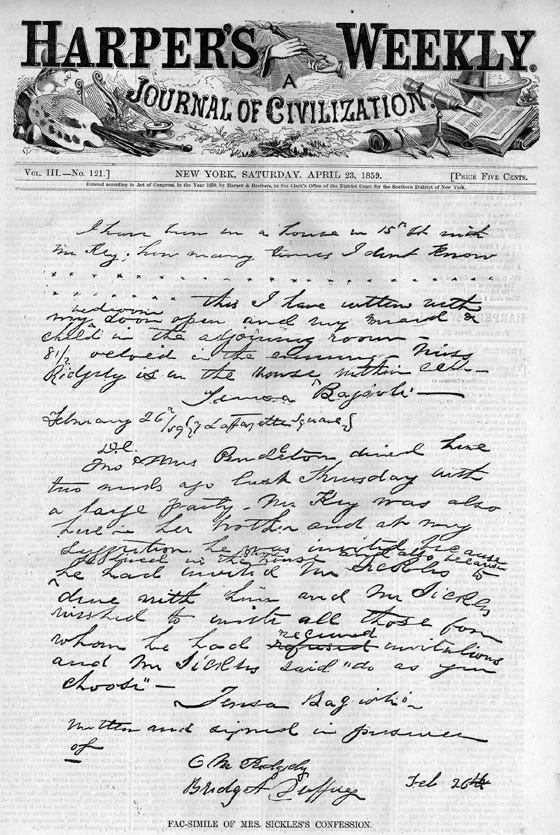 HARPER'S WEEKLY.
A
JOURNAL OF CIVILIZATION
VOL. III.—No. 121.] NEW YORK, SATURDAY, APRIL 23, 1859. [PRICE FIVE CENTS.
Entered according to Act of Congress, in the Year 1859, by Harper & Brothers, in the Clerk's Office of the District Court for the Southern District of New York.
I have been in a house in 15th St with
Mr Key. how many times I dont know
this I have written with
my bedroom door open and my maid &
child in the adjoining room—
8½ oclock in the evening— Miss
Ridgely is in the house within call—
Teresa Bagioli—
February 26th 59 Laffayette Square
Mr & Mrs Pendleton dined here
two weeks ago last Thursday with
a large party. Mr Key was also
here. her brother and at my
suggestion he was invited because
he lived in the same house and also because
he had invited Mr Sickles to
dine with him and Mr Sickles
wished to invite all those from
whom he had refused received invitations
and Mr Sickles said "do as you
choose"—
Teresa Bagioli
Written and signed in presence
of
C M Ridgely
Bridget Duffy Feb 26th
FAC-SIMILE OF MRS. SICKLES'S CONFESSION.